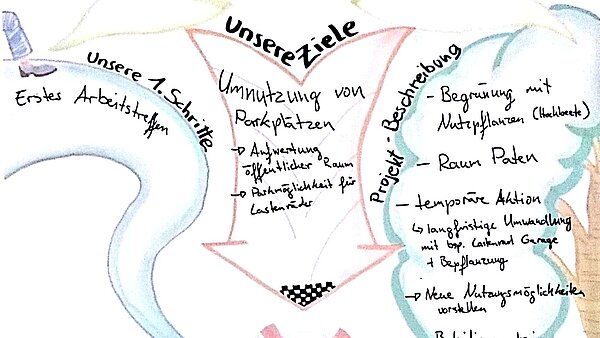 Unsere 1. Schritte
Erstes Arbeitstreffen
Unsere Ziele
Umnutzung von
Parkplätzen
→ Aufwertung
öffentlicher Raum
→ Parkmöglichkeit für
Lastenräder
Projekt-Beschreibung
- Begrünung mit
Nutzpflanzen (Hochbeete)
- Raum Paten
- temporäre Aktion
↳ langfristige Umwandlung
mit bsp. Lastenrad Garage
+ Bepflanzung
→ Neue Nutzungsmöglichkeiten
vorstellen